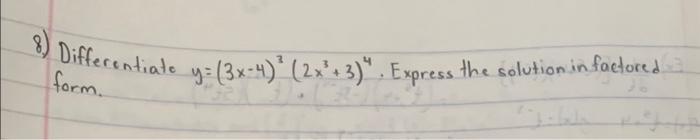 8) Differentiate y=(3x-4)² (2x³+3)⁴. Express the solution in factored
form.